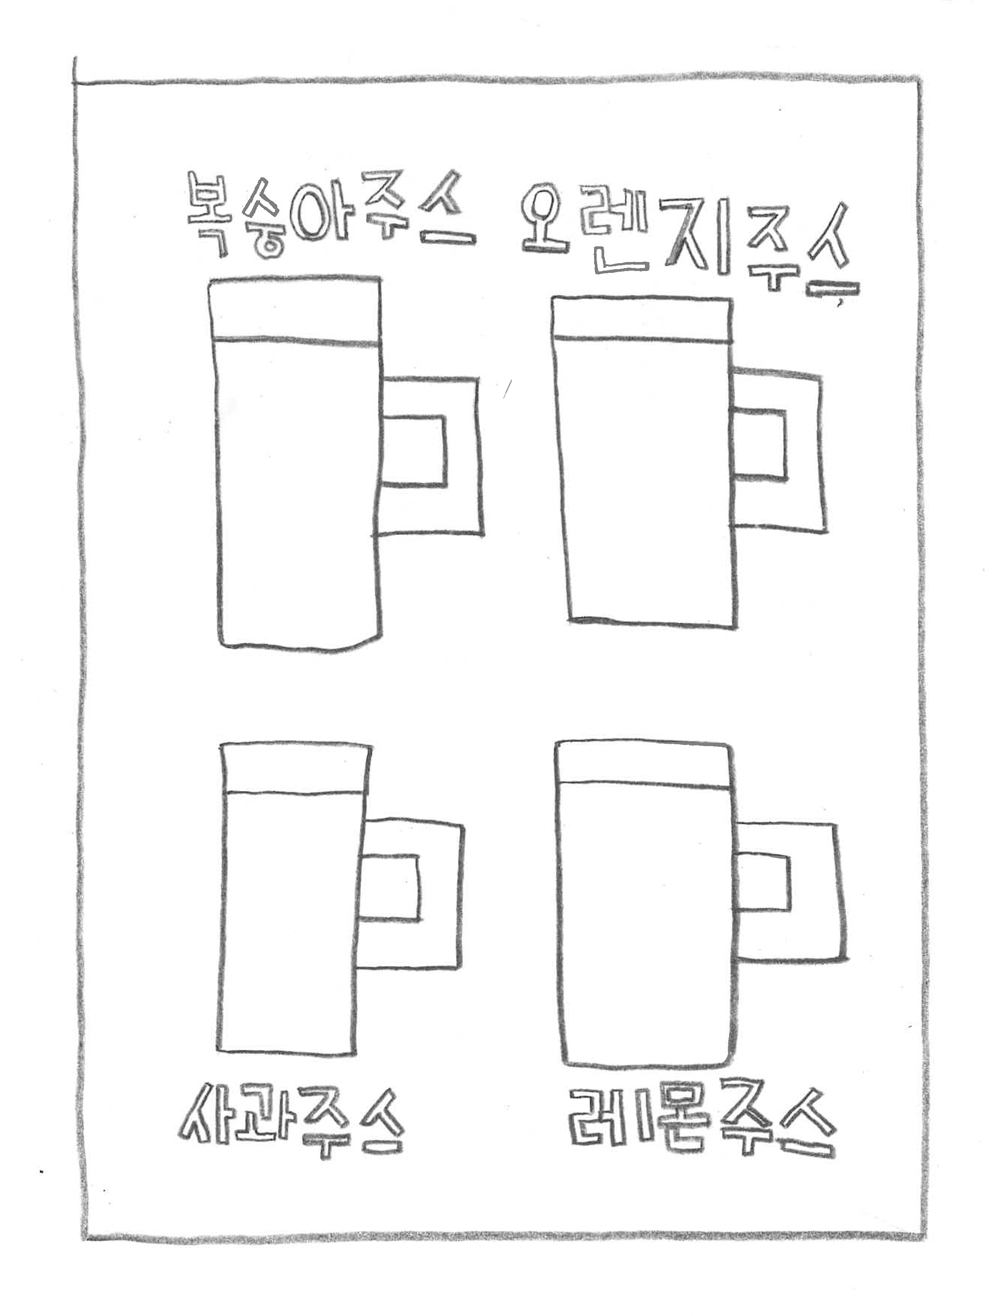 복숭아주스
오렌지주스
사과주스
레몬주스